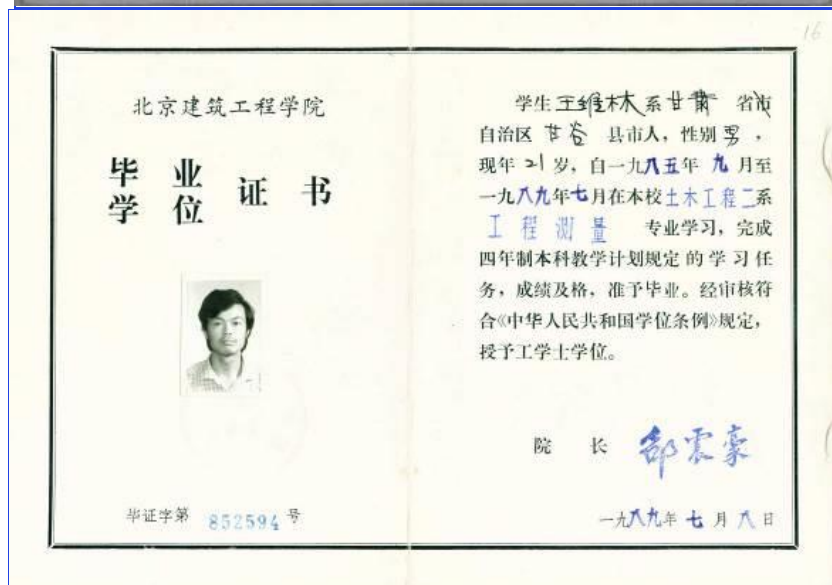 16
北京建筑工程学院
毕业
学位
证书
毕证字第 852594 号
学生王维林系甘肃省市
自治区甘谷县市人，性别男，
现年21岁，自一九八五年九月至
一九八九年七月在本校土木工程二系
工程测量专业学习，完成
四年制本科教学计划规定的学习任
务，成绩及格，准予毕业。经审核符
合《中华人民共和国学位条例》规定，
授予工学士学位。
院长 郐震豪
一九八九年七月八日